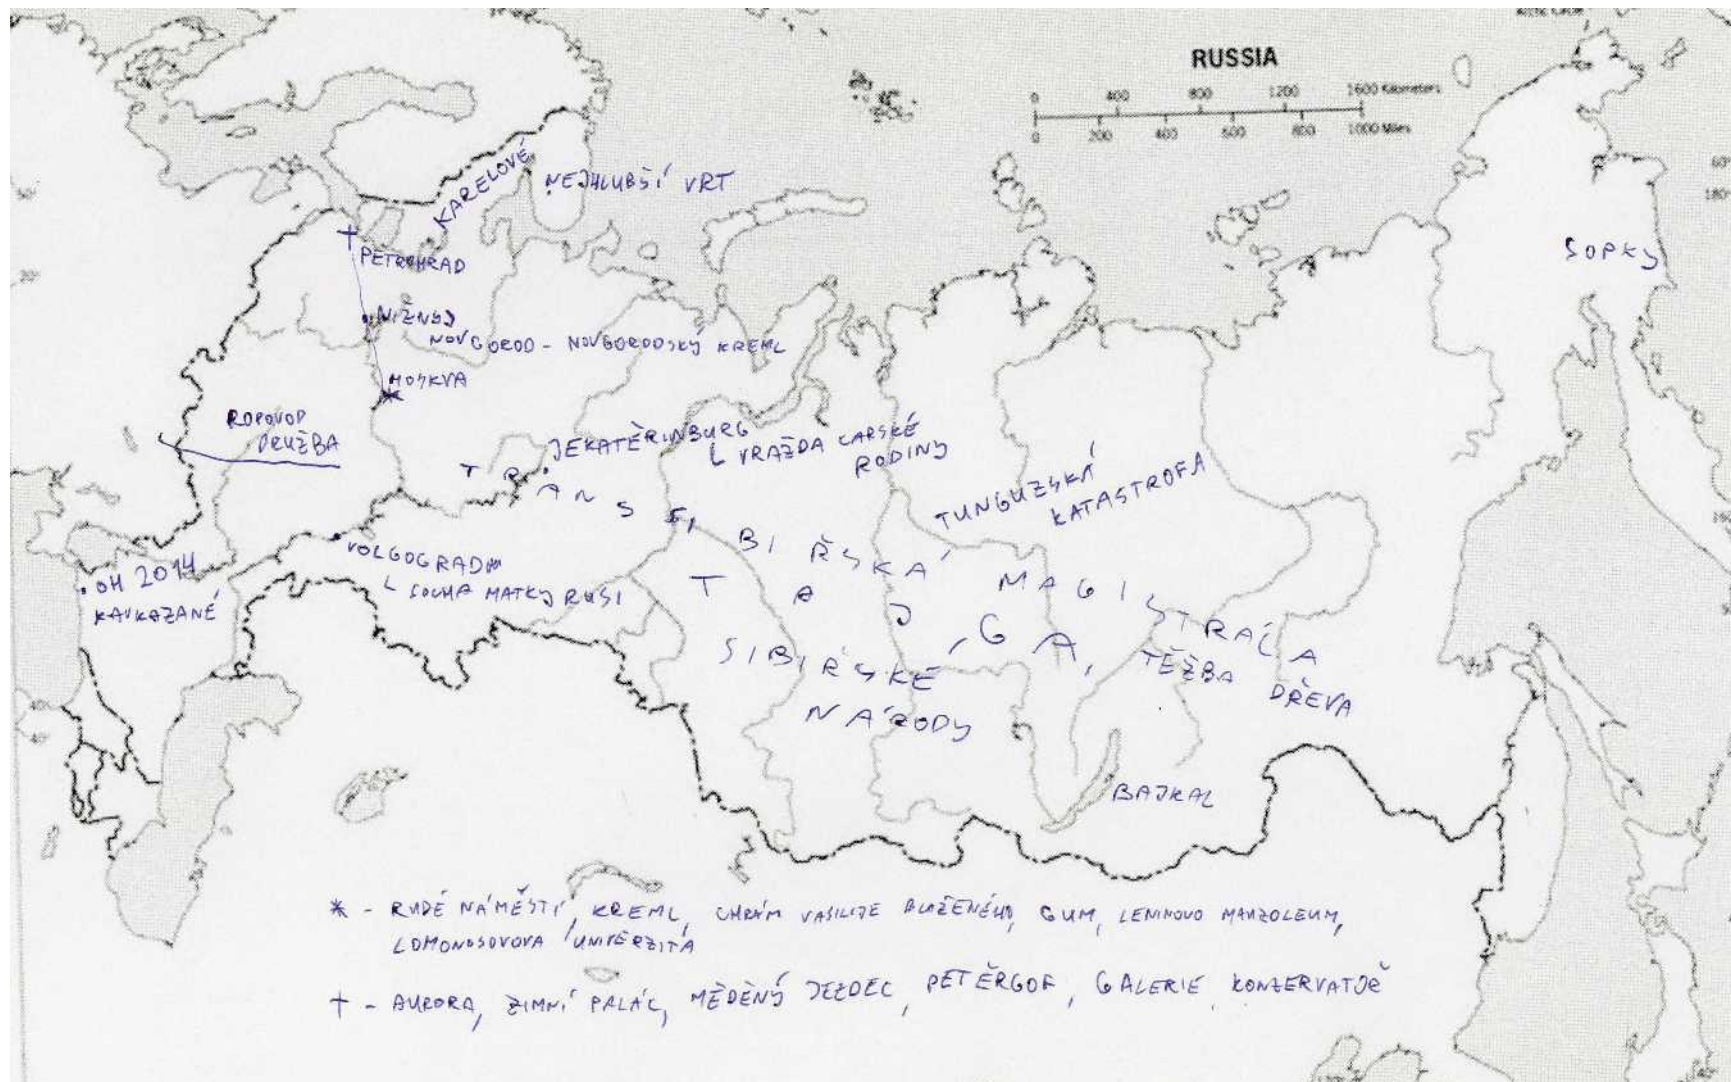 RUSSIA
0 400 800 1200 1600 Kilometers
0 200 400 600 800 1000 Miles
60°
180°
KARELOVÉ
NEJHLUBŠÍ VRT
PETROHRAD
SOPKY
NIŽNYJ
NOVGOROD - NOVGORODSKÝ KREML
MOSKVA
ROPOVOD
DRUŽBA
JEKATĚRINBURG
VRAŽDA CARSKÉ
RODINY
TUNGUZSKÁ
KATASTROFA
TRANSSIBIŘSKÁ MAGISTRÁLA
VOLGOGRAD
SOCHA MATKY RUSI
OH 2014
KAVKAZANÉ
TAJGA, TĚŽBA
DŘEVA
SIBIŘSKÉ
NÁRODY
BAJKAL
* - RUDÉ NÁMĚSTÍ, KREML, CHRÁM VASILIJE BLAŽENÉHO, GUM, LENINOVO MAUZOLEUM,
LOMONOSOVOVA UNIVERZITA
† - AURORA, ZIMNÍ PALÁC, MĚDĚNÝ JEZDEC, PETĚRGOF, GALERIE, KONZERVATOŘ